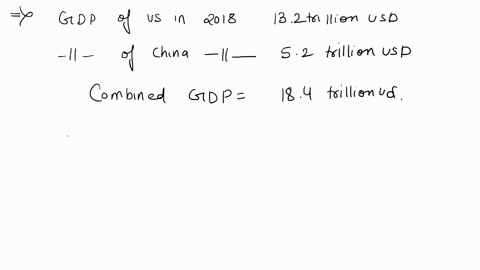 ⇒ GDP of US in 2018 13.2 trillion USD
–||– of China –||– 5.2 trillion USD
Combined GDP = 18.4 trillion ud.